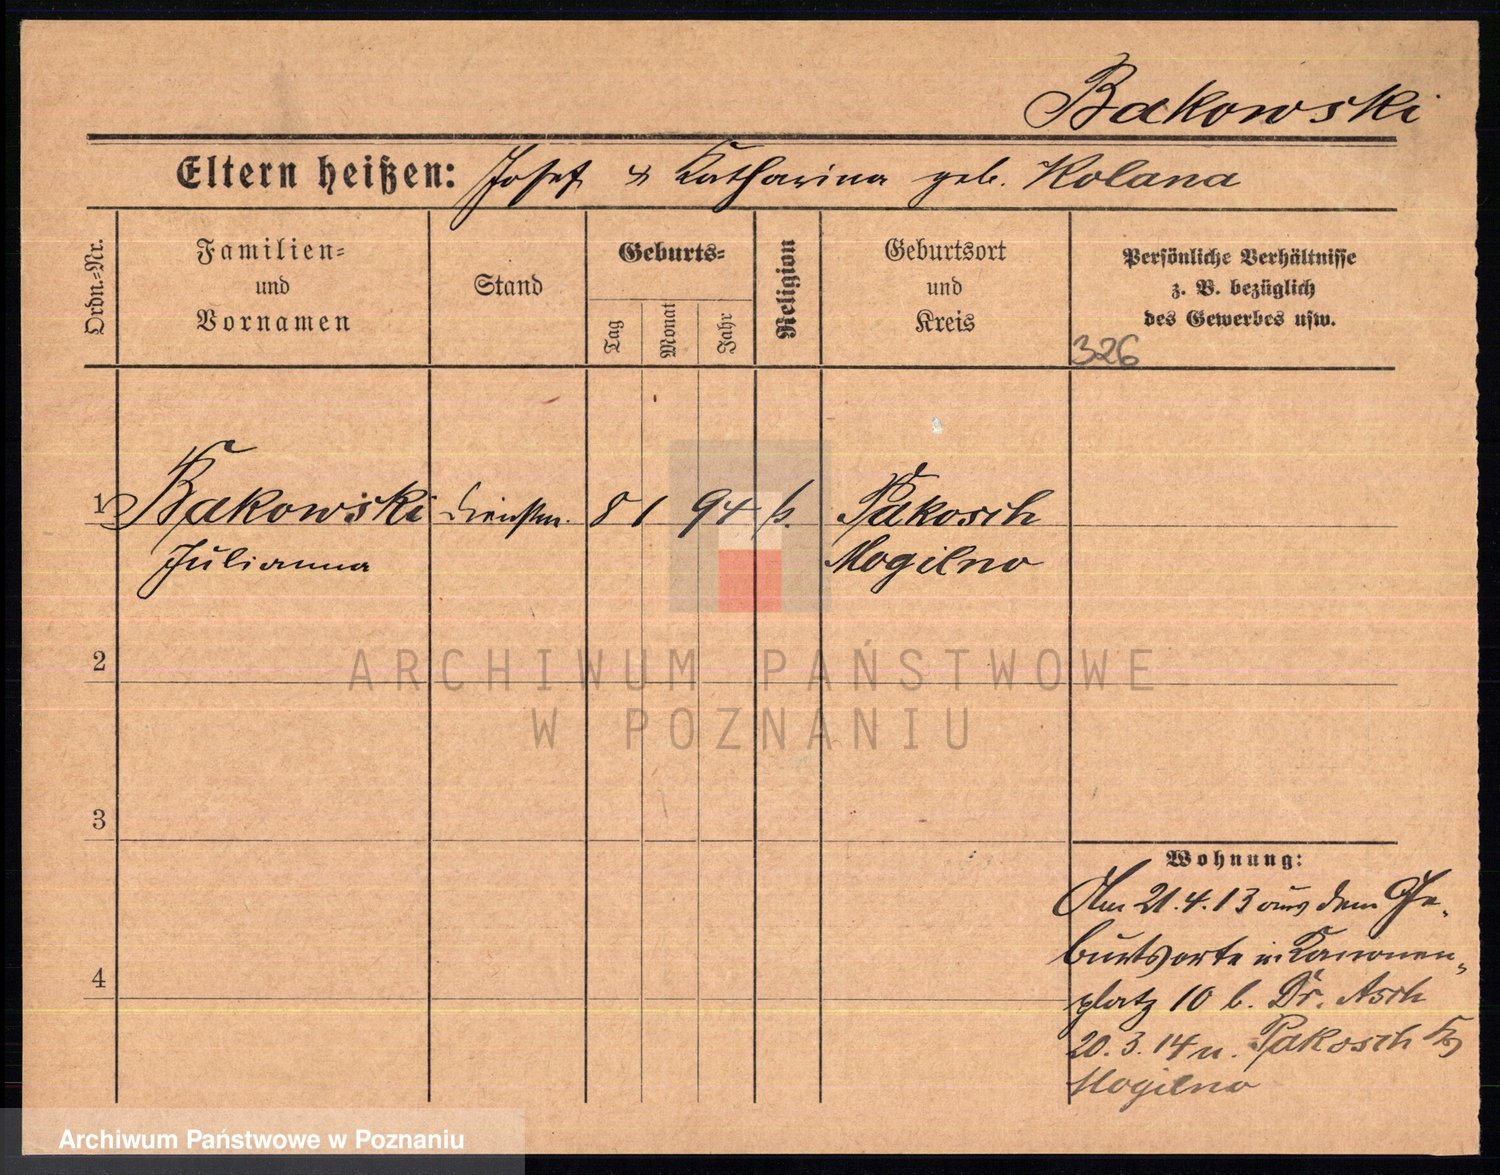 Bakowski
Eltern heißen: Josef & Katharina geb. Kolana
Ordn.-Nr.
Familien- und Vornamen
Stand
Geburts-
Tag
Monat
Jahr
Religion
Geburtsort und Kreis
Persönliche Verhältnisse
z. B. bezüglich
des Gewerbes usw.
326
1 Bakowski Dienstm. 8 1 94 k. Pakosch
Julianna Mogilno
2
3
4
Wohnung:
Am 21.4.13 aus dem Ge-
burtsorte n. Kanonen-
platz 10 b. Dr. Asch
20.3.14 n. Pakosch Krs
Mogilno
ARCHIWUM PAŃSTWOWE
W POZNANIU
Archiwum Państwowe w Poznaniu